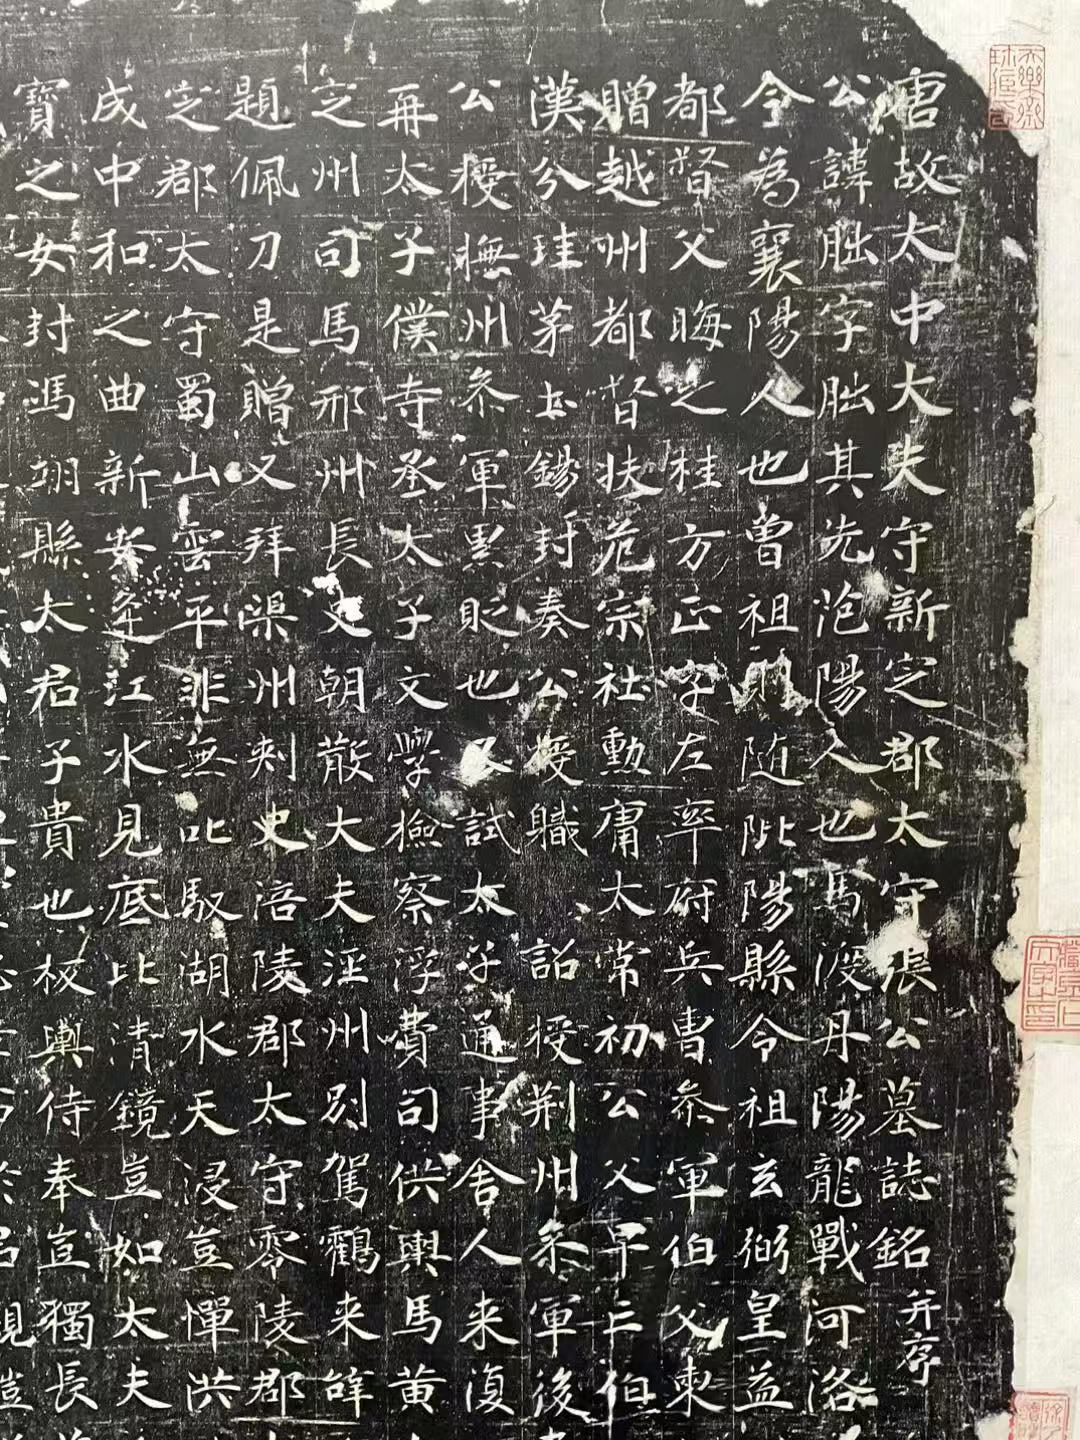 唐故太中大夫守新定郡太守張公墓誌銘并序
公諱朏字朏其先范陽人也馬渡丹陽龍戰河洛
令為襄陽人也曾祖則隨阰陽縣令祖玄弼皇益
都督父晦之桂方正字左率府兵曹叅軍伯父柬
贈越州都督扶危宗社勳庸太常初公父早亡伯
漢分珪茅土錫封奏公授職詔授荆州叅軍後
公授撫州叅軍累貶也又試太子通事舍人来復
再太子僕寺丞太子文學檢察浮費司供輿馬黄
之州司馬邢州長史朝散大夫淫州別駕鸖来
題佩刀是贈又拜渠州刾史涪陵郡太守零陵郡
定郡太守蜀山雲平非無叱馭湖水天浸豈憚洪
成中和之曲新安逢江水見底比清鏡豈如太夫
寳之女封馮翊縣太君子貴也板輿侍奉豈獨長